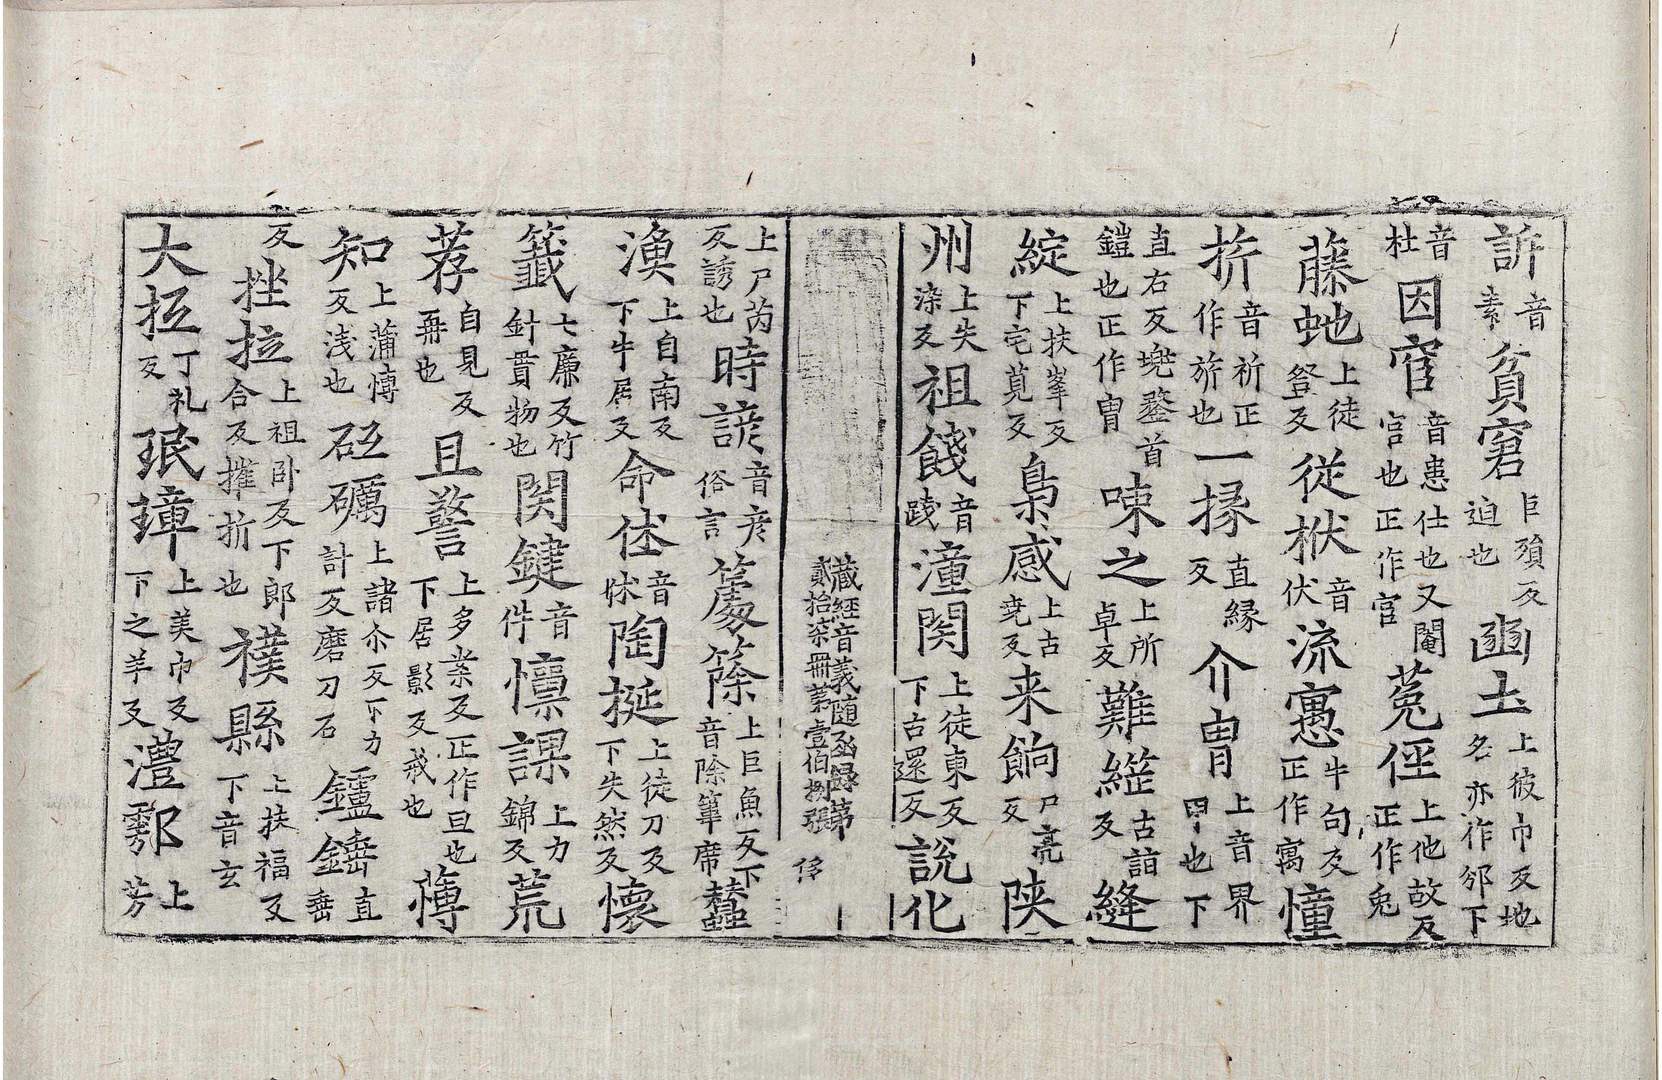 訴音素貧窘巨殞反迫也豳土上彼巾反地名亦作邠下
音杜因宦音患仕也又閹宫也正作官菟侄上他故反正作兔
藤虵上徒登反従栿音伏流㥥牛句反正作寓憧
折音祈正作旂也一掾直縁反介冑上音界甲也下
直右反兠鍪首鎧也正作冑㖼之上所卓反難繼古詣反縫
綻上扶峯反下宅莧反梟感上古尭反来餉尸亮反陕
州上失染反祖餞音踐潼関上徒東反下古還反説化
藏經音義随函録第貳拾柒冊苐壹伯捌張 㑋
上尸芮反誘也時諺音彦俗言籧篨上巨魚反下音除葦席蠶
漁上自南反下牛居反命俅音怵陶挻上徒刀反下失然反懷
籤七廉反竹針貫物也関鍵音件懍課上力錦反荒
荐自見反再也且警上多業反正作旦也下居影反戒也薄
知上蒲愽反浅也砥礪上諸尒反下力計反磨刀石鑪錘直垂
反挫拉上祖卧反下郎合反摧折也襆縣上扶福反下音玄
大抵丁礼反珉璋上美巾反下之羊反澧鄠上芳